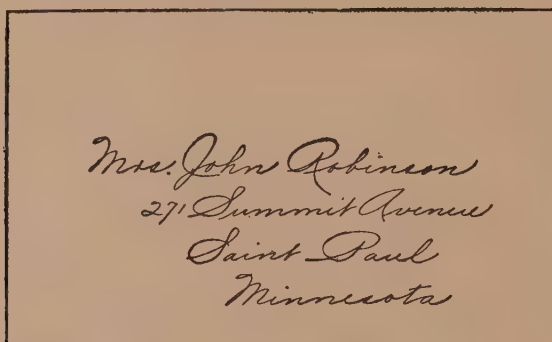 Mrs. John Robinson
271 Summit Avenue
Saint Paul
Minnesota